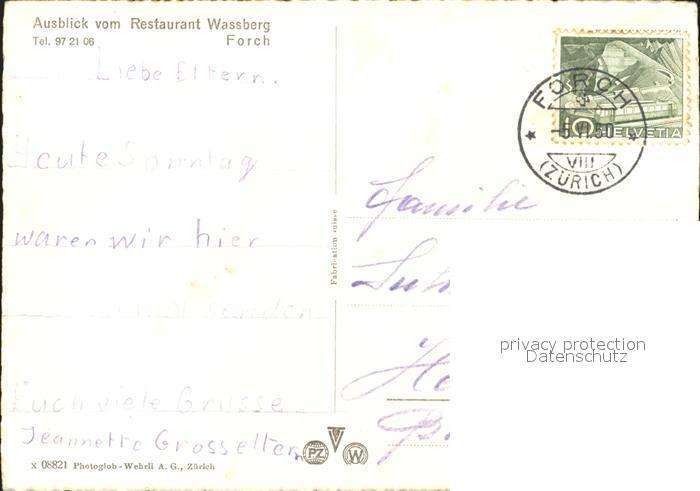 Ausblick vom Restaurant Wassberg
Tel. 97 21 06 Forch
Liebe Eltern.
Heute Sonntag
waren wir hier
senden
Euch viele Grüsse
Jeannette Grosseltern
X 08821 Photoglob-Wehrli A. G., Zürich
PZ
W
Fabrication suisse
FORCH
VIII
(ZÜRICH)
10 HELVETIA
Familie
privacy protection
Datenschutz